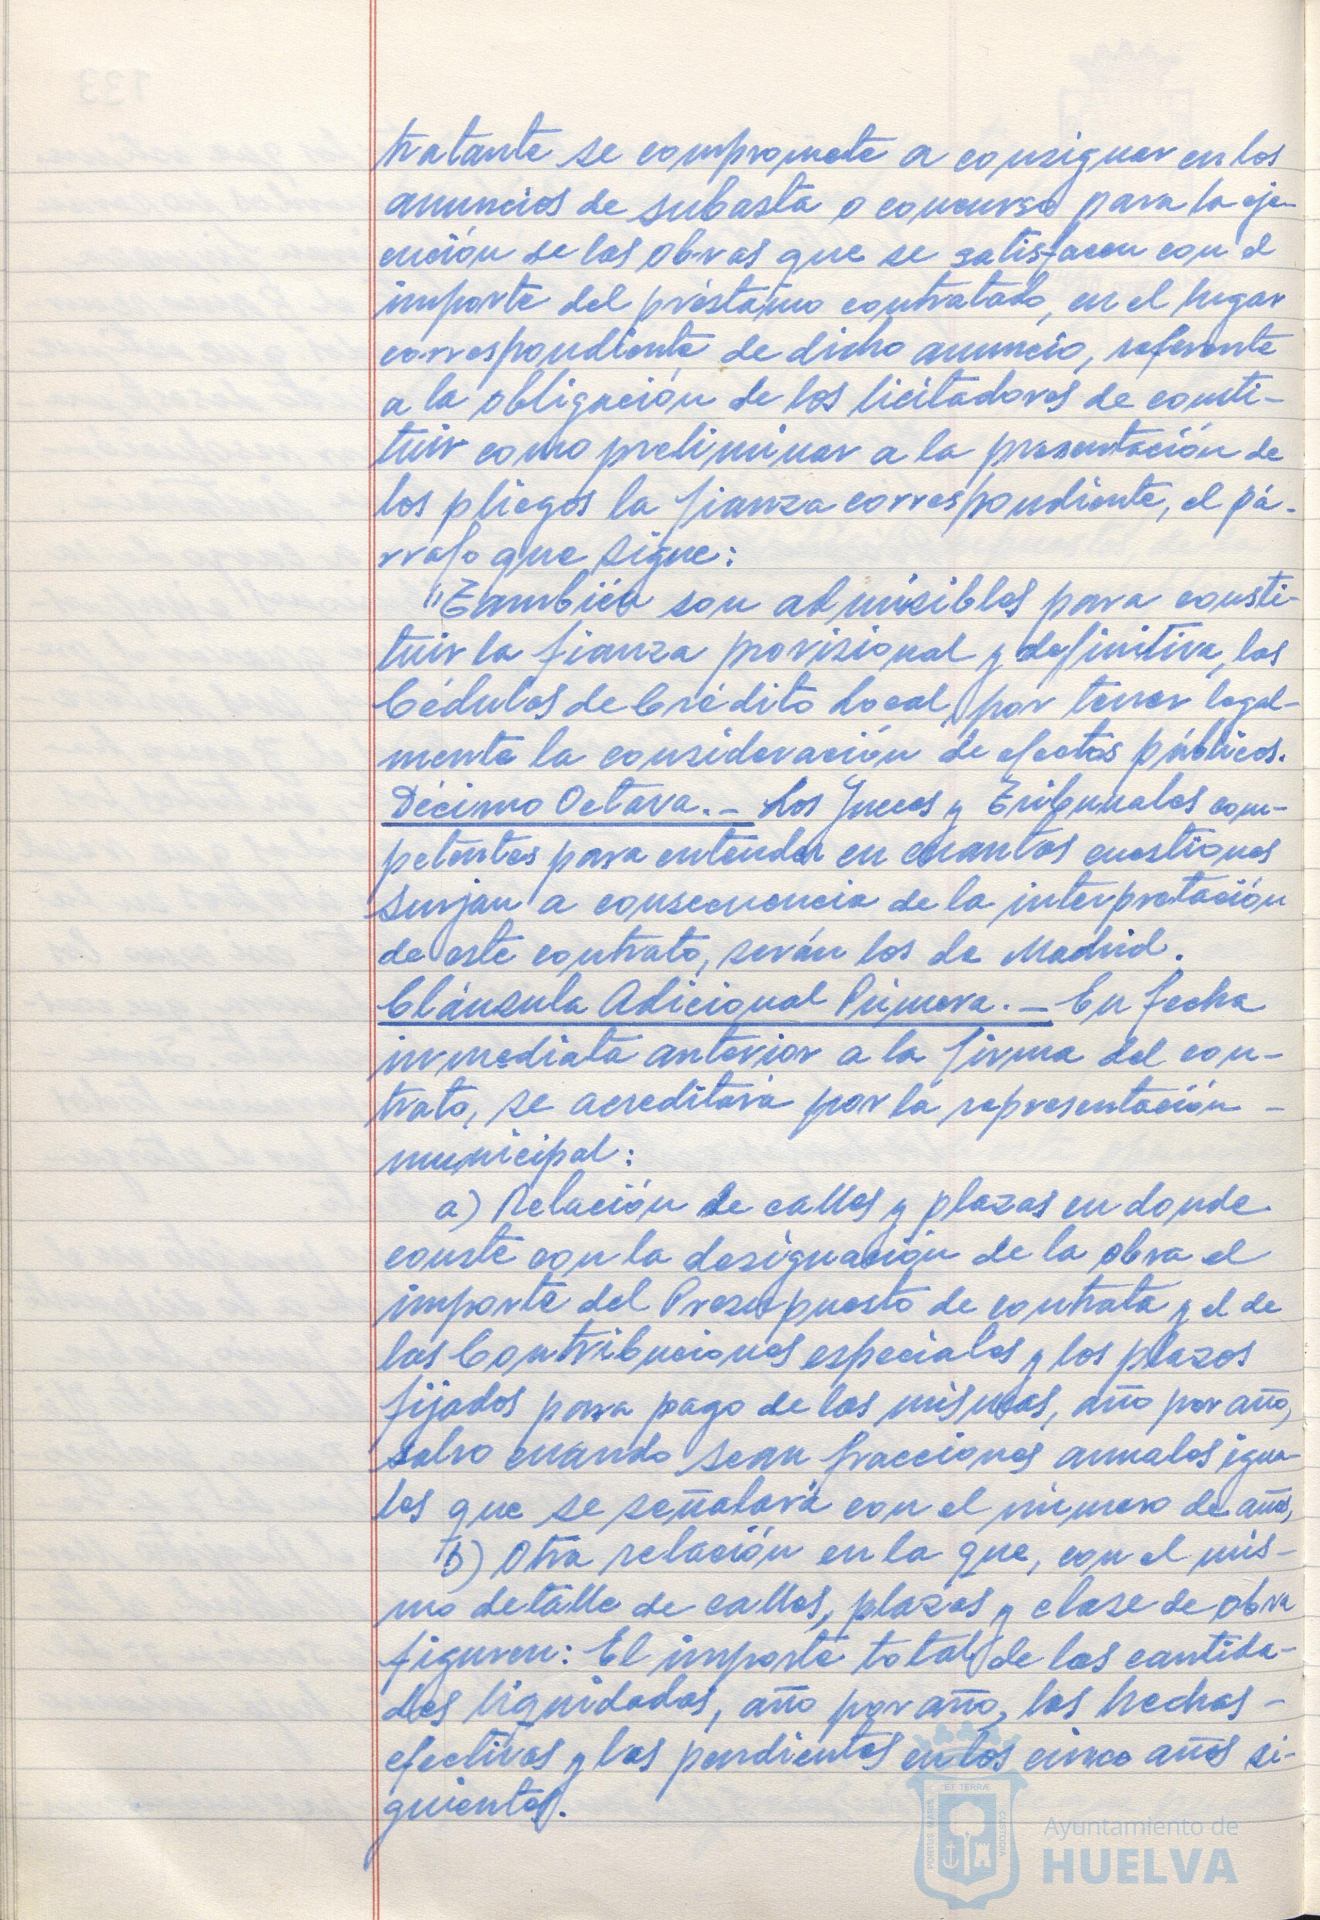 tratante se compromete a consignar en los
anuncios de subasta o concurso para la eje-
cución de las obras que se satisfacen con el
importe del préstamo contratado, en el lugar
correspondiente de dicho anuncio, referente
a la obligación de los licitadores de consti-
tuir como preliminar a la presentación de
los pliegos la fianza correspondiente, el pá-
rrafo que sigue:
"También son admisibles para consti-
tuir la fianza provisional y definitiva, las
Cédulas de Crédito Local, por tener legal-
mente la consideración de efectos públicos.
Décimo Octava.- Los Jueces y Tribunales com-
petentes para entender en cuantas cuestiones
surjan a consecuencia de la interpretación
de este contrato, serán los de Madrid.
Cláusula Adicional Primera.- En fecha
inmediata anterior a la firma del con-
trato, se acreditará por la representación -
municipal:
a) Relación de calles y plazas en donde
conste con la designación de la obra el
importe del Presupuesto de contrata y el de
las Contribuciones especiales y los plazos
fijados para pago de las mismas, año por año,
salvo cuando sean fracciones anuales igua-
les que se señalará con el número de años,
b) Otra relación en la que, con el mis-
mo detalle de calles, plazas y clase de obra
figuren: El importe total de las cantida-
des liquidadas, año por año, las hechas -
efectivas y las pendientes en los cinco años si-
guientes.
ET TERRÆ
PORTUS MARIS
CUSTODIA
Ayuntamiento de
HUELVA